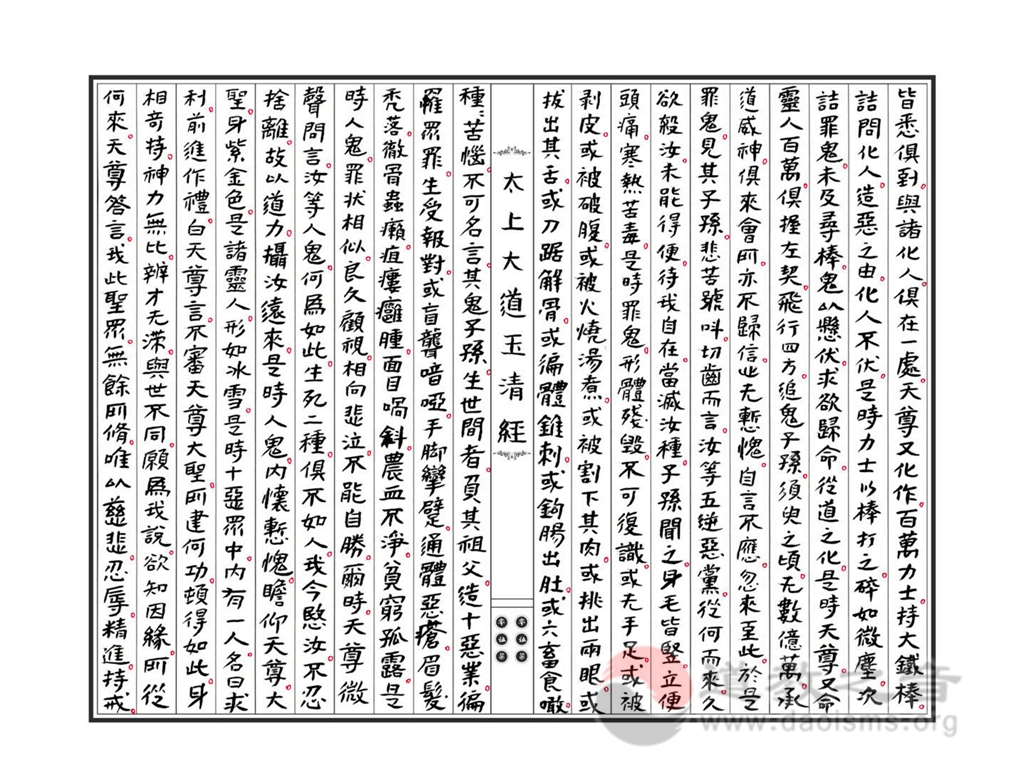 皆悉俱到與諸化人俱在一處天尊又化作百萬力士持大鐵棒
詰問化人造惡之由化人不伏是時力士以棒打之碎如微塵次
詰罪鬼未及尋棒鬼以懸伏求欲歸命從道之化是時天尊又命
靈人百萬俱握左契飛行四方追鬼子孫須臾之頃无數億萬承
道威神俱來會所亦不歸信也无慙愧自言不應忽來至此於是
罪鬼見其子孫悲苦號叫切齒而言汝等五逆惡黨從何而來久
欲殺汝未能得便待我自在當滅汝種子孫聞之身毛皆豎立便
頭痛寒熱苦毒是時罪鬼形體殘毀不可復識或无手足或被
剥皮或被破腹或被火燒湯煮或被割下其肉或挑出兩眼或
拔出其舌或刀踞解骨或徧體錐刺或鉤腸出肚或六畜食噉
太上大道玉清經
種〻苦惱不可名言其鬼子孫生世間者負其祖父造十惡業徧
罹眾罪生受報對或盲聾喑啞手脚攣躄通體惡瘡眉髮
秃落徹骨蟲癩疽瘻癰腫面目喎斜農血不淨貧窮孤露是
時人鬼罪狀相似良久顧視相向悲泣不能自勝爾時天尊微
聲問言汝等人鬼何爲如此生死二種俱不如人我今愍汝不忍
捨離故以道力攝汝遠來是時人鬼內懷慙愧瞻仰天尊大
聖身紫金色是諸靈人形如冰雪是時十惡眾中內有一人名曰求
利前進作禮白天尊言不審天尊大聖所建何功頓得如此身
相奇持神力無比辨才无滞與世不同願爲我說欲知因緣所從
何來天尊答言我此聖眾無餘所脩唯以慈悲忍辱精進持戒
道教之音
www.daoisms.org